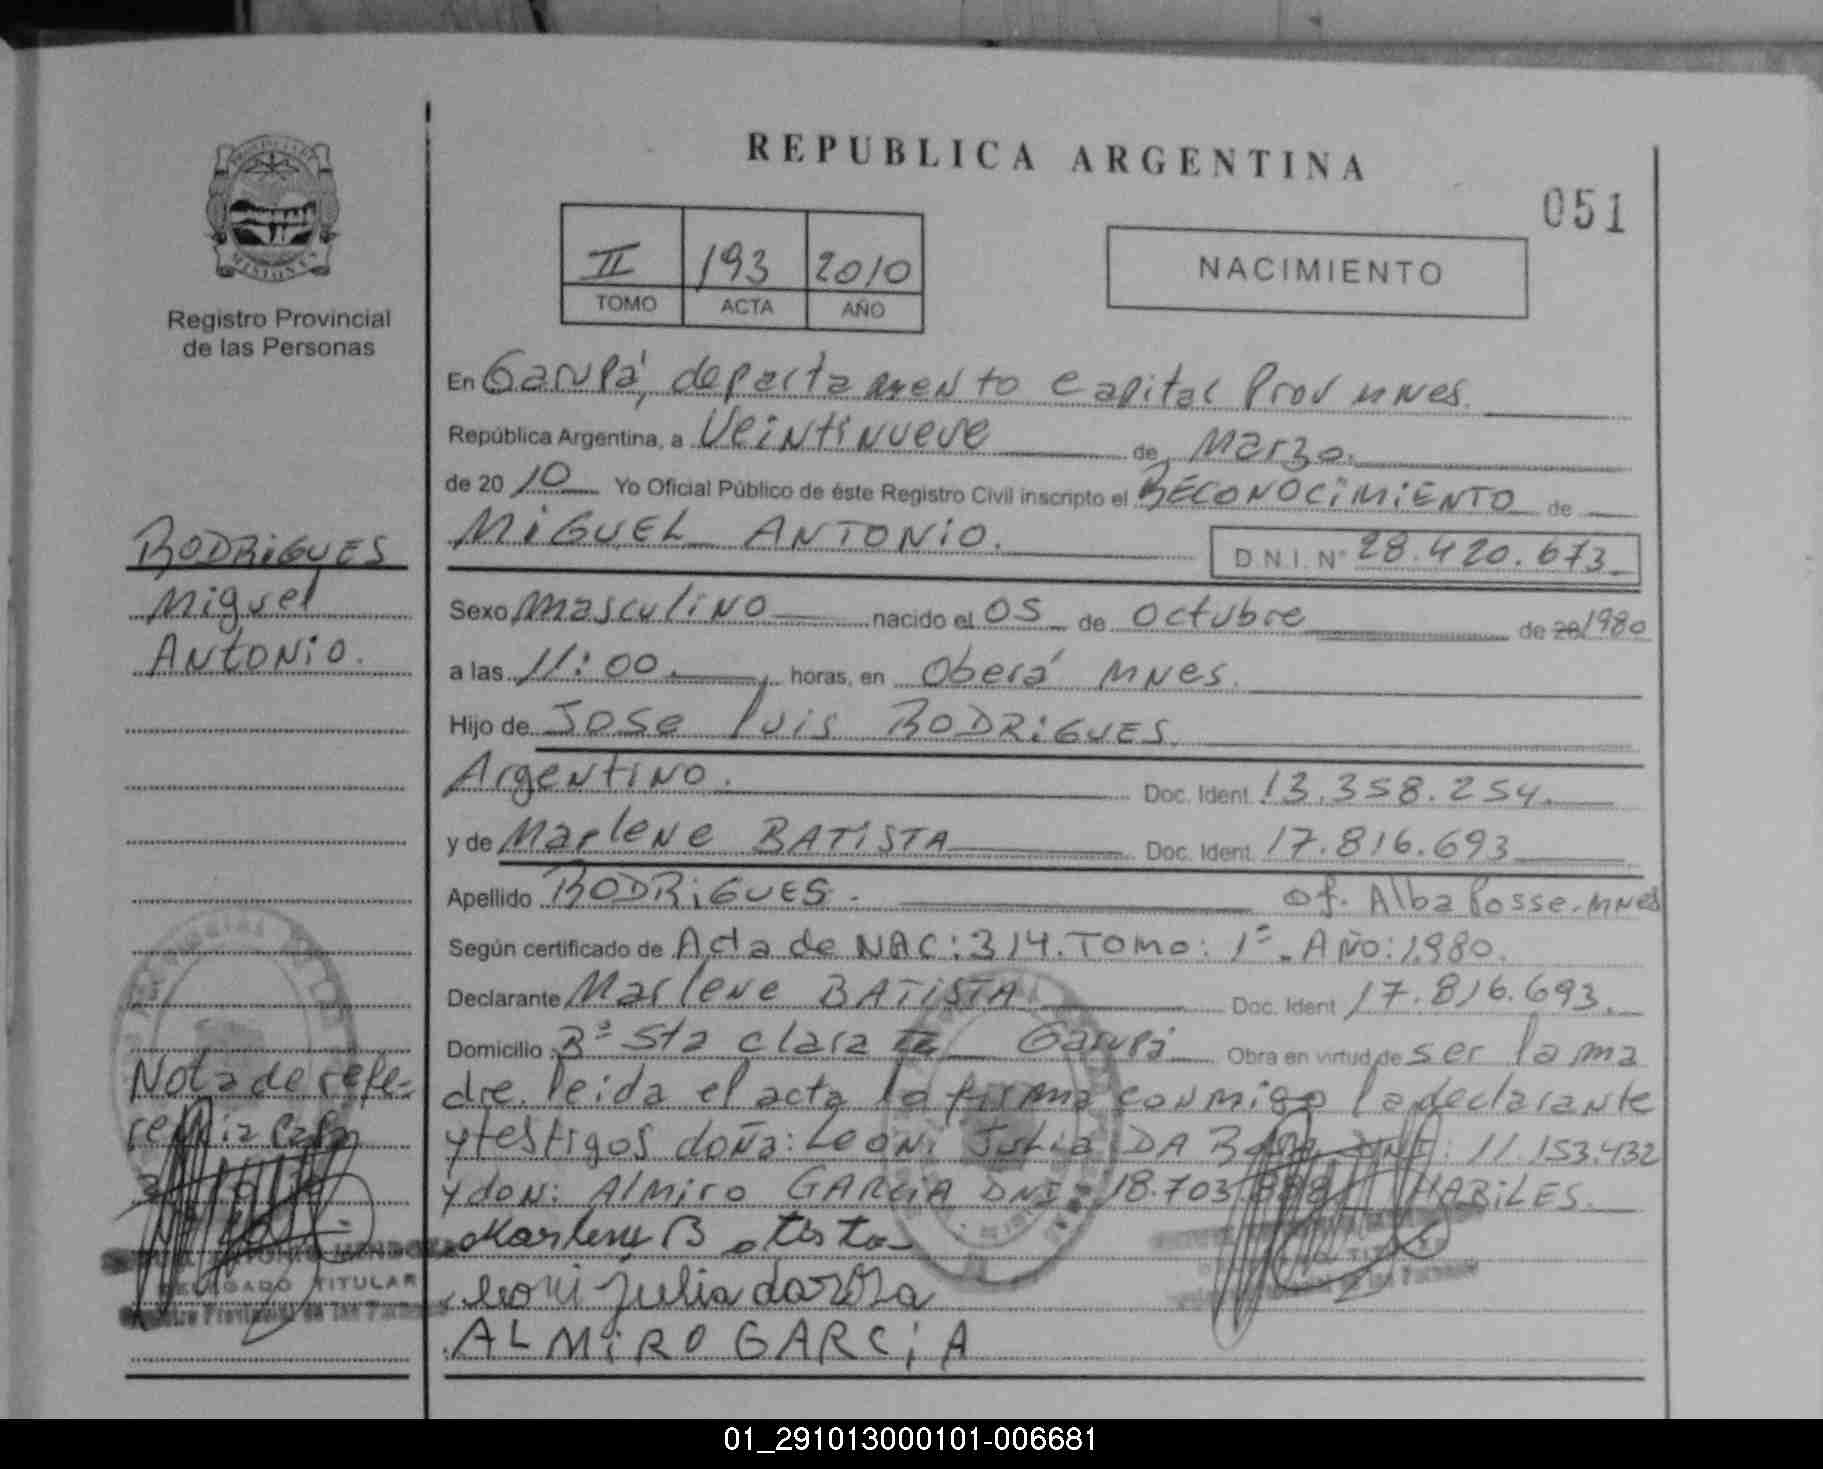 REPUBLICA ARGENTINA
051
II 193 2010
TOMO ACTA AÑO
NACIMIENTO
MISIONES
Registro Provincial
de las Personas
En Garupá, departamento Capital Prov mnes.
República Argentina, a Veintinueve de Marzo.
de 2010 Yo Oficial Público de éste Registro Civil inscripto el RECONOCIMIENTO de
MIGUEL ANTONIO. D.N.I. Nº 28.420.673
RODRIGUES
Miguel
ANtONio.
Sexo masculiNO nacido el 05 de Octubre de 20 1980
a las 11:00 horas, en Oberá mNes.
Hijo de Jose luis RODRiGUES.
ArgeNtiNO. Doc. Ident. 13.358.254.
y de MarleNe BATiSTA Doc. Ident. 17.816.693
Apellido RODRiGUES. Of. Alba Posse. mNes
Según certificado de Acta de NAC: 314. Tomo: 1º. AÑo: 1980.
Declarante MarleNe BATiSTA Doc. Ident 17.816.693.
Domicilio Bº Sta clara II Garupá Obra en virtud de ser la ma
dre. leida el acta la firma conmigo la declarante
y testigos doña: LeoNi Julia DA DNI: 11.153.432
y doN: Almiro GARCiA DNI 18.703 HABiLES.
Nota de refe=
rencia
Marlene B tista
leoni Julia da
ALMiRO GARCiA
DELEGADO TITULAR
Registro Provincial de las Personas
01_291013000101-006681